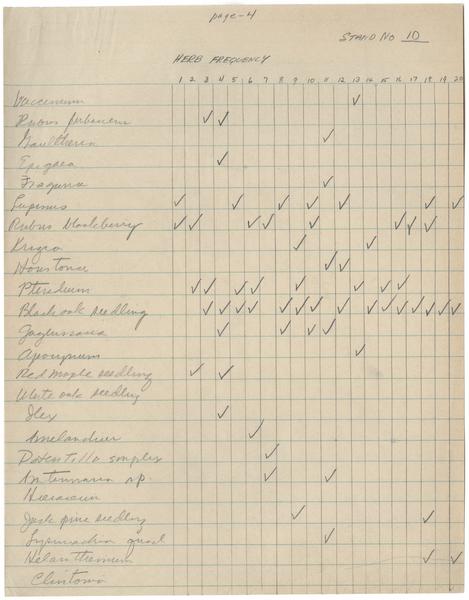 page-4
STAND No 10
HERB FREQUENCY
1 2 3 4 5 6 7 8 9 10 11 12 13 14 15 16 17 18 19 20
Vaccinium ✓
Rubus ✓ ✓
Gaultheria ✓
Epigaea ✓
Fragaria ✓
Lupinus ✓ ✓ ✓ ✓ ✓ ✓ ✓
Rubus blackberry ✓ ✓ ✓ ✓ ✓ ✓ ✓ ✓
Krigia ✓ ✓
Houstonia ✓ ✓
Pteridium ✓ ✓ ✓ ✓ ✓ ✓ ✓ ✓
Black oak seedling ✓ ✓ ✓ ✓ ✓ ✓ ✓ ✓ ✓ ✓ ✓ ✓ ✓ ✓ ✓ ✓
✓ ✓ ✓ ✓
Apocynum ✓
Red maple seedling ✓ ✓
White oak seedling
Ilex ✓
Amelanchier ✓
Potentilla simplex ✓
Antennaria sp. ✓ ✓
Hieracium
Jack pine seedling ✓ ✓
Lysimachia quad ✓
Helianthemum ✓ ✓
Clintonia